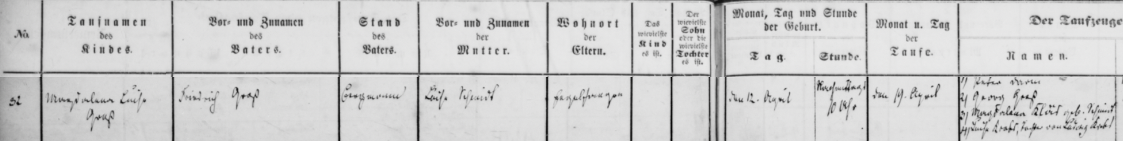 No.
Taufnamen
des
Kindes.
Vor- und Zunamen
des
Vaters.
Stand
des
Vaters.
Vor- und Zunamen
der
Mutter.
Wohnort
der
Eltern.
Das
wievielste
Kind
es ist.
Der
wievielste
Sohn
oder die
wievielste
Tochter
es ist.
Monat, Tag und Stunde
der Geburt.
Tag.
Stunde.
Monat u. Tag
der
Taufe.
Der Taufzeugen
Namen.
32
Magdalena Luise
Groß
Friedrich Groß
Bergmann
Luise Schmidt
den 12. April
Nachmittags
10 Uhr
den 19. April
1) Peter
2) Georg Groß
3) Magdalena geb. Schmidt
4) Luise Tochter von Ludwig